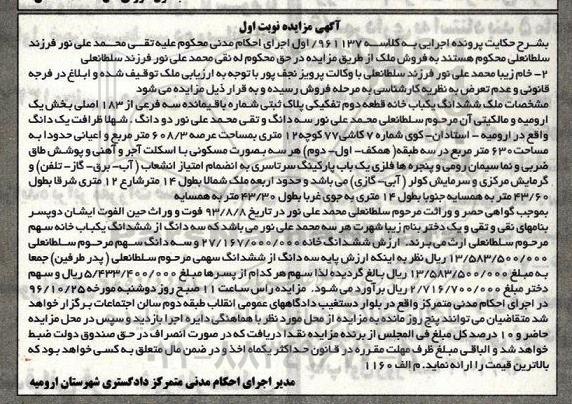 آگهی مزایده نوبت اول
بشرح حکایت پرونده اجرایی به کلاسه ۹۶۱۱۳۷/ اول اجرای احکام مدنی محکوم علیه تقی محمد علی نور فرزند
سلطانعلی محکوم هستند به فروش ملک از طریق مزایده در حق محکوم له نقی محمد علی نور فرزند سلطانعلی
۲- خانم زیبا محمد علی نور فرزند سلطانعلی با وکالت پرویز نجف پور با توجه به ارزیابی ملک توقیف شده و ابلاغ در فرجه
قانونی و عدم تعرض به نظریه کارشناسی به مرحله فروش رسیده و به قرار ذیل مزایده می شود
مشخصات ملک ششدانگ یکباب خانه قطعه دوم تفکیکی پلاک ثبتی شماره باقیمانده سه فرعی از ۱۸۳ اصلی بخش یک
ارومیه و مالکیتی آن مرحوم سلطانعلی محمد علی نور سه دانگ و تقی محمد علی نور دو دانگ . شهلا ظرافت یک دانگ
واقع در ارومیه - استادان-کوی شماره ۷ کاشی۷۷ کوچه۱۲ متری بمساحت عرصه ۶۰۸/۳ متر مربع و اعیانی حدودا به
مساحت۶۳۰ متر مربع در سه طبقه( همکف -اول- دوم) هر سه بصورت مسکونی با اسکلت آجر و آهنی و پوشش طاق
ضربی و نماسیمان رومی و پنجره ها فلزی یک باب پارکینگ سرتاسری به انضمام امتیاز انشعاب ( آب- برق- گاز- تلفن) و
گرمایش مرکزی و سرمایش کولر (آبی- گازی) می باشد و حدود اربعه ملک شمالا بطول ۱۴ مترشارع ۱۲ متری شرقا بطول
۴۳/۶۰ متر به همسایه جنوبا بطول ۱۴ متری به جوی غربا بطول ۴۳/۳۰ متر به همسایه
بموجب گواهی حصر و وراثت مرحوم سلطانعلی محمد علی نور در تاریخ ۹۳/۸/۸ فوت و وراث حین الفوت ایشان دوپسر
بنامهای نقی و تقی و یک دختر بنام زیبا شهرت هر سه محمد علی نور می باشد که سه دانگ از ششدانگ یکباب خانه سهم
مرحوم سلطانعلی ارث می برند. ارزش ششدانگ خانه ۲۷/۱۶۷/۰۰۰/۰۰۰ و سه دانگ سهم مرحوم سلطانعلی
۱۳/۵۸۳/۵۰۰/۰۰۰ ریال نظر به اینکه ارزش پایه سه دانگ از ششدانگ سهمی مرحوم سلطانعلی ( پدر طرفین) جمعا
به مبلغ ۱۳/۵۸۳/۵۰۰/۰۰۰ ریال بالغ گردیده لذا سهم هرکدام از پسرها مبلغ ۵/۴۳۳/۴۰۰/۰۰۰ ریال و سهم
دختر مبلغ ۲/۷۱۶/۷۰۰/۰۰۰ ریال برآورد می شود. مزایده راس ساعت ۱۱ صبح روز دوشنبه مورخه ۹۶/۱۰/۲۵
در اجرای احکام مدنی متمرکز واقع در بلوار دستغیب دادگاههای عمومی انقلاب طبقه دوم سالن اجتماعات برگزار خواهد
شد متقاضیان می توانند پنج روز مانده به مزایده از محل مورد نظر با هماهنگی دایره اجرا بازدید و سپس در محل مزایده
حاضر و ۱۰ درصد کل مبلغ فی المجلس از برنده مزایده نقدا دریافت که در صورت انصراف در حق صندوق دولت ضبط
خواهد شد و الباقی مبلغ ظرف مهلت مقرره در قانون حداکثر یکماه اخذ و در ضمن مال متعلق به کسی خواهد بود که
بالاترین قیمت را ارائه نماید. م الف ۱۱۶۰
مدیر اجرای احکام مدنی متمرکز دادگستری شهرستان ارومیه